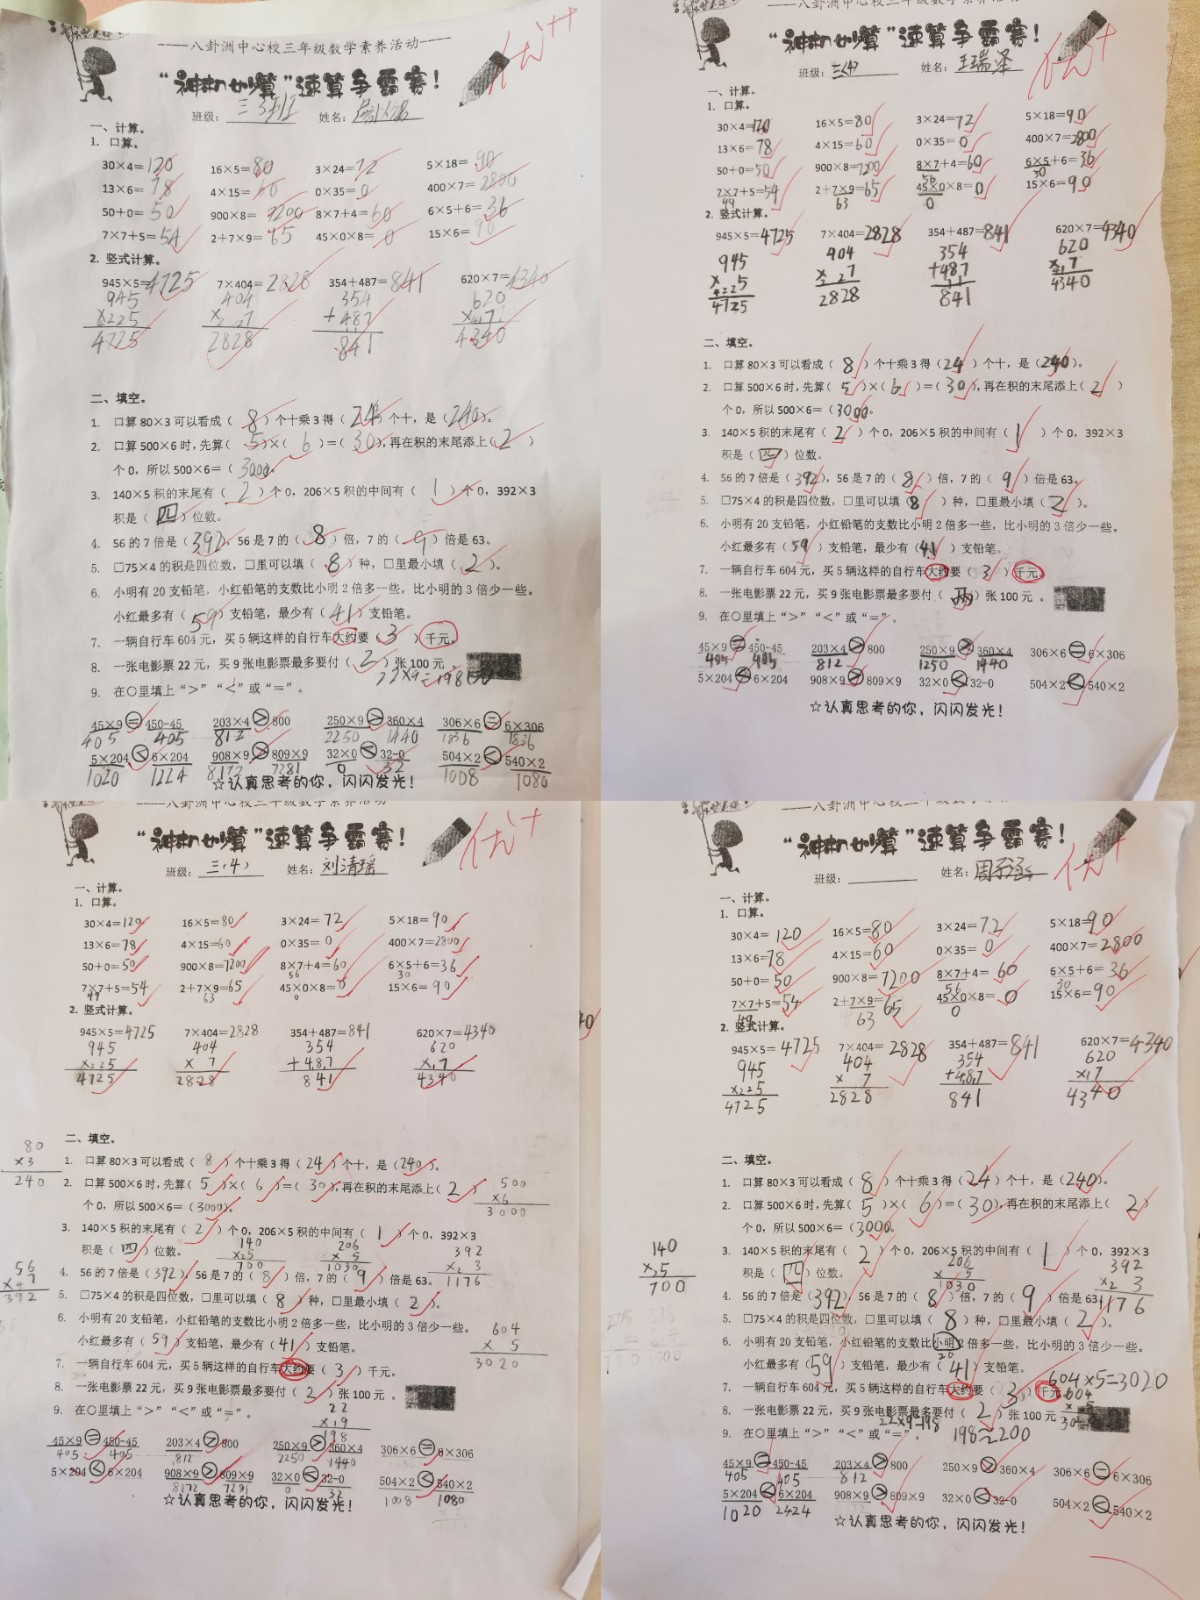 ——八卦洲中心校三年级数学素养活动——
“神机妙算”速算争霸赛！
优++
班级： 姓名：
一、计算。
1. 口算。
30×4=120 16×5=80 3×24=72 5×18=90
13×6=78 4×15=60 0×35=0 400×7=2800
50+0=50 900×8=7200 8×7+4=60 6×5+6=36
7×7+5=54 2+7×9=65 45×0×8=0 15×6=90
2. 竖式计算。
945×5=4725 7×404=2828 354+487=841 620×7=4340
945 404 354 620
×5 ×7 +487 ×7
4725 2828 841 4340
二、填空。
1. 口算80×3可以看成（8）个十乘3得（24）个十，是（240）。
2. 口算500×6时，先算（5）×（6）=（30），再在积的末尾添上（2）
个0，所以500×6=（3000）。
3. 140×5积的末尾有（2）个0，206×5积的中间有（1）个0，392×3
积是（四）位数。
4. 56的7倍是（392），56是7的（8）倍，7的（9）倍是63。
5. □75×4的积是四位数，□里可以填（8）种，□里最小填（2）。
6. 小明有20支铅笔，小红铅笔的支数比小明2倍多一些，比小明的3倍少一些。
小红最多有（59）支铅笔，最少有（41）支铅笔。
7. 一辆自行车604元，买5辆这样的自行车大约要（3）千元。
8. 一张电影票22元，买9张电影票最多要付（2）张100元。
22×9=198
9. 在○里填上“>”“<”或“=”。
45×9=450-45 203×4>800 250×9>360×4 306×6=6×306
405 405 812 2250 1440 1836 1836
5×204<6×204 908×9>809×9 32×0<32-0 504×2<540×2
1020 1224 8172 7281 0 32 1008 1080
☆认真思考的你，闪闪发光！
八卦洲中心校三年级数学素养活动
“神机妙算”速算争霸赛！
优++
班级：三(4) 姓名：王瑞泽
一、计算。
1. 口算。
30×4=120 16×5=80 3×24=72 5×18=90
13×6=78 4×15=60 0×35=0 400×7=2800
50+0=50 900×8=7200 8×7+4=60 6×5+6=36
56 30
7×7+5=54 2+7×9=65 45×0×8=0 15×6=90
49 63 0
2. 竖式计算。
945×5=4725 7×404=2828 354+487=841 620×7=4340
945 404 354 620
×5 ×7 +487 ×7
4725 2828 841 4340
二、填空。
1. 口算80×3可以看成（8）个十乘3得（24）个十，是（240）。
2. 口算500×6时，先算（5）×（6）=（30），再在积的末尾添上（2）
个0，所以500×6=（3000）。
3. 140×5积的末尾有（2）个0，206×5积的中间有（1）个0，392×3
积是（四）位数。
4. 56的7倍是（392），56是7的（8）倍，7的（9）倍是63。
5. □75×4的积是四位数，□里可以填（8）种，□里最小填（2）。
6. 小明有20支铅笔，小红铅笔的支数比小明2倍多一些，比小明的3倍少一些。
小红最多有（59）支铅笔，最少有（41）支铅笔。
7. 一辆自行车604元，买5辆这样的自行车大约要（3）千元。
8. 一张电影票22元，买9张电影票最多要付（两）张100元。
9. 在○里填上“>”“<”或“=”。
45×9=450-45 203×4>800 250×9>360×4 306×6=6×306
405 405 812 1250 1440
5×204<6×204 908×9>809×9 32×0<32-0 504×2<540×2
☆认真思考的你，闪闪发光！
——八卦洲中心校三年级数学素养活动
“神机妙算”速算争霸赛！
优+
班级：三(4) 姓名：刘清瑶
一、计算。
1. 口算。
30×4=120 16×5=80 3×24=72 5×18=90
13×6=78 4×15=60 0×35=0 400×7=2800
50+0=50 900×8=7200 8×7+4=60 6×5+6=36
56 30
7×7+5=54 2+7×9=65 45×0×8=0 15×6=90
49 63 0
2. 竖式计算。
945×5=4725 7×404=2828 354+487=841 620×7=4340
945 404 354 620
×5 ×7 +487 ×7
4725 2828 841 4340
二、填空。
80
×3
240
1. 口算80×3可以看成（8）个十乘3得（24）个十，是（240）。
2. 口算500×6时，先算（5）×（6）=（30），再在积的末尾添上（2）
500
×6
3000
个0，所以500×6=（3000）。
3. 140×5积的末尾有（2）个0，206×5积的中间有（1）个0，392×3
积是（四）位数。
140 206 392
×5 ×5 ×3
700 1030 1176
56
×7
392
4. 56的7倍是（392），56是7的（8）倍，7的（9）倍是63。
5. □75×4的积是四位数，□里可以填（8）种，□里最小填（2）。
6. 小明有20支铅笔，小红铅笔的支数比小明2倍多一些，比小明的3倍少一些。
小红最多有（59）支铅笔，最少有（41）支铅笔。
604
×5
3020
7. 一辆自行车604元，买5辆这样的自行车大约要（3）千元。
8. 一张电影票22元，买9张电影票最多要付（2）张100元。
22
×9
198
9. 在○里填上“>”“<”或“=”。
45×9=450-45 203×4>800 250×9>360×4 306×6=6×306
405 405 812 2250 1440
5×204<6×204 908×9>809×9 32×0<32-0 504×2<540×2
8172 7281 0 32 1008 1080
☆认真思考的你，闪闪发光！
——八卦洲中心校三年级数学素养活动
“神机妙算”速算争霸赛！
优+
班级： 姓名：
一、计算。
1. 口算。
30×4=120 16×5=80 3×24=72 5×18=90
13×6=78 4×15=60 0×35=0 400×7=2800
50+0=50 900×8=7200 8×7+4=60 6×5+6=36
56 30
7×7+5=54 2+7×9=65 45×0×8=0 15×6=90
49 63 0
2. 竖式计算。
945×5=4725 7×404=2828 354+487=841 620×7=4340
945 404 354 620
×5 ×7 +487 ×7
4725 2828 841 4340
二、填空。
1. 口算80×3可以看成（8）个十乘3得（24）个十，是（240）。
2. 口算500×6时，先算（5）×（6）=（30），再在积的末尾添上（2）
个0，所以500×6=（3000）。
3. 140×5积的末尾有（2）个0，206×5积的中间有（1）个0，392×3
积是（四）位数。
140 206 392
×5 ×5 ×3
700 1030 1176
4. 56的7倍是（392），56是7的（8）倍，7的（9）倍是63。
5. □75×4的积是四位数，□里可以填（8）种，□里最小填（2）。
6. 小明有20支铅笔，小红铅笔的支数比小明2倍多一些，比小明的3倍少一些。
20
小红最多有（59）支铅笔，最少有（41）支铅笔。
604×5=3020
7. 一辆自行车604元，买5辆这样的自行车大约要（3）千元。
8. 一张电影票22元，买9张电影票最多要付（2）张100元
22×9=198
198≈200
9. 在○里填上“>”“<”或“=”。
45×9=450-45 203×4>800 250×9>360×4 306×6=6×306
405 405 812
5×204<6×204 908×9>809×9 32×0<32-0 504×2<540×2
1020 2424
☆认真思考的你，闪闪发光！